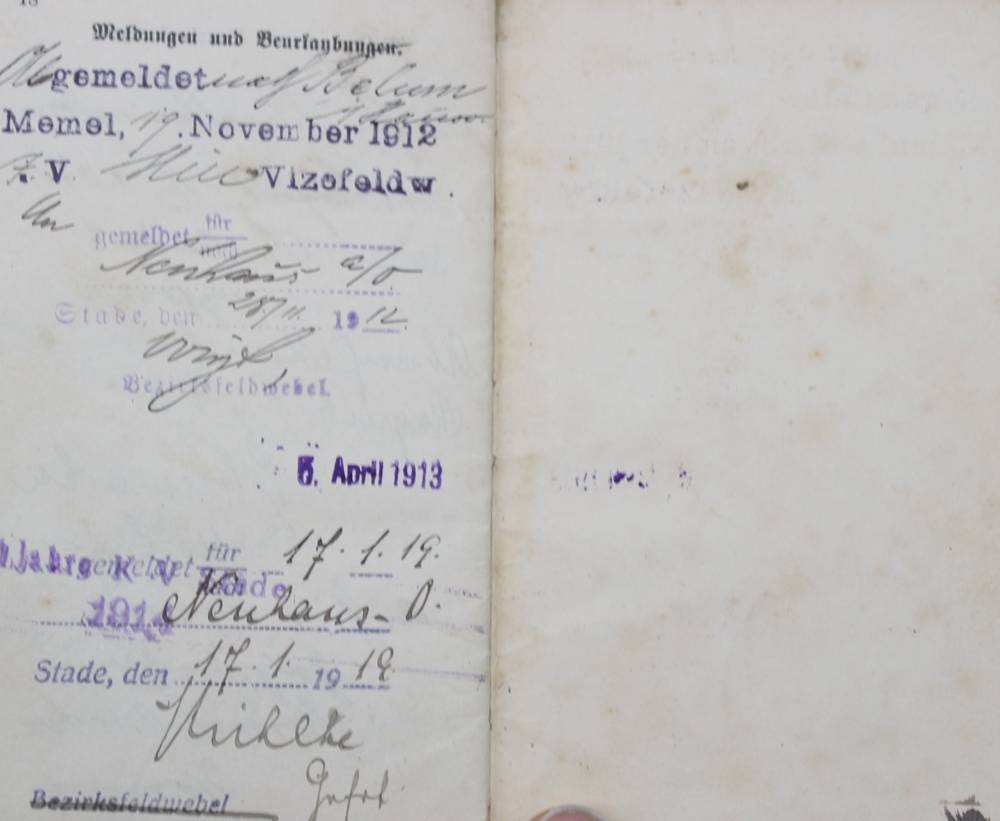 18
Meldungen und Beurlaubungen.
Abgemeldet nach
Memel, 19. November 1912
I. V. Vizefeldw.
An
gemeldet für
nach
Neuhaus a/O
Stade, den 28/11. 1912.
Bezirksfeldwebel.
5. April 1913
gemeldet für 17. 1. 19.
nach
1914 Neuhaus-O.
Stade, den 17. 1. 1919
Gefrt
Bezirksfeldwebel